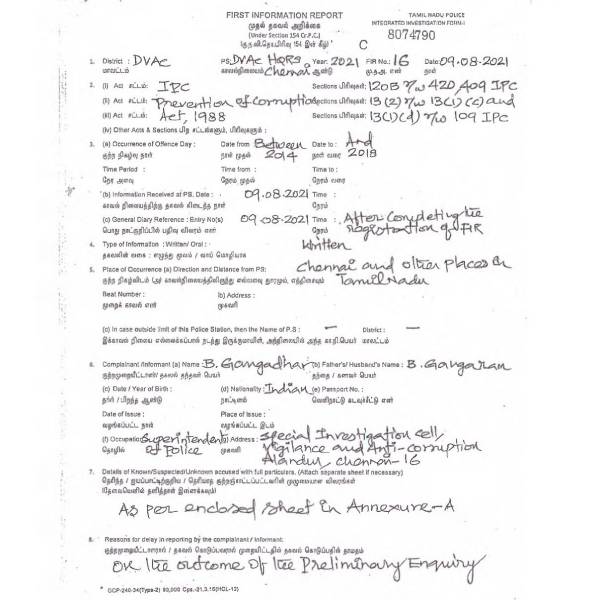 FIRST INFORMATION REPORT
TAMIL NADU POLICE
முதல் தகவல் அறிக்கை
INTEGRATED INVESTIGATION FORM-I
(Under Section 154 Cr.P.C.)
C 8074790
1. District : DVAC PS: DVAC HQRS Year: 2021 FIR No.: 16 Date: 09-08-2021
மாவட்டம் காவல்நிலையம் Chennai ஆண்டு மு.த.அ. எண் நாள்
2. (i) Act சட்டம்: IPC Sections பிரிவுகள்: 120B r/w 420, 409 IPC
(ii) Act சட்டம்: Prevention of Corruption Sections பிரிவுகள்: 13(2) r/w 13(1)(c) and
(iii) Act சட்டம்: Act, 1988 Sections பிரிவுகள்: 13(1)(d) r/w 109 IPC
(iv) Other Acts & Sections பிற சட்டங்களும், பிரிவுகளும் :
3. (a) Occurrence of Offence Day : Date from : Between Date to : And
குற்ற நிகழ்வு நாள் நாள் முதல் 2014 நாள் வரை 2018
Time Period : Time from : Time to :
நேர அளவு நேரம் முதல் நேரம் வரை
(b) Information Received at PS. Date : 09.08.2021 Time :
காவல் நிலையத்திற்கு தகவல் கிடைத்த நாள் நேரம்
(c) General Diary Reference : Entry No(s) 09-08-2021 Time : After Completing the
நேரம் Registration of FIR
4. Type of Information : Written/ Oral : Written
தகவலின் வகை : எழுத்து மூலம் / வாய் மொழியாக
5. Place of Occurrence (a) Direction and Distance from PS: Chennai and other Places in
Tamil Nadu
Beat Number : (b) Address :
முறைக் காவல் எண் முகவரி
(c) In case outside limit of this Police Station, then the Name of P.S : – District : –
மாவட்டம்
6. Complainant /Informant (a) Name : B. Gangadhar (b) Father's/ Husband's Name : B. Gangaran
தந்தை / கணவர் பெயர்
(c) Date / Year of Birth : (d) Nationality : Indian (e) Passport No. :
நாட்டினம்
Date of Issue : Place of Issue :
வழங்கப்பட்ட நாள் வழங்கப்பட்ட இடம்
(f) Occupation Superintendent (g) Address : Special Investigation Cell,
தொழில் of Police முகவரி Vigilance and Anti-corruption
Alandur, Chennai-16
7. Details of Known/Suspected/Unknown accused with full particulars. (Attach separate sheet if necessary)
As per enclosed sheet in Annexure-A
8. Reasons for delay in reporting by the complainant / Informant:
On the outcome of the Preliminary Enquiry